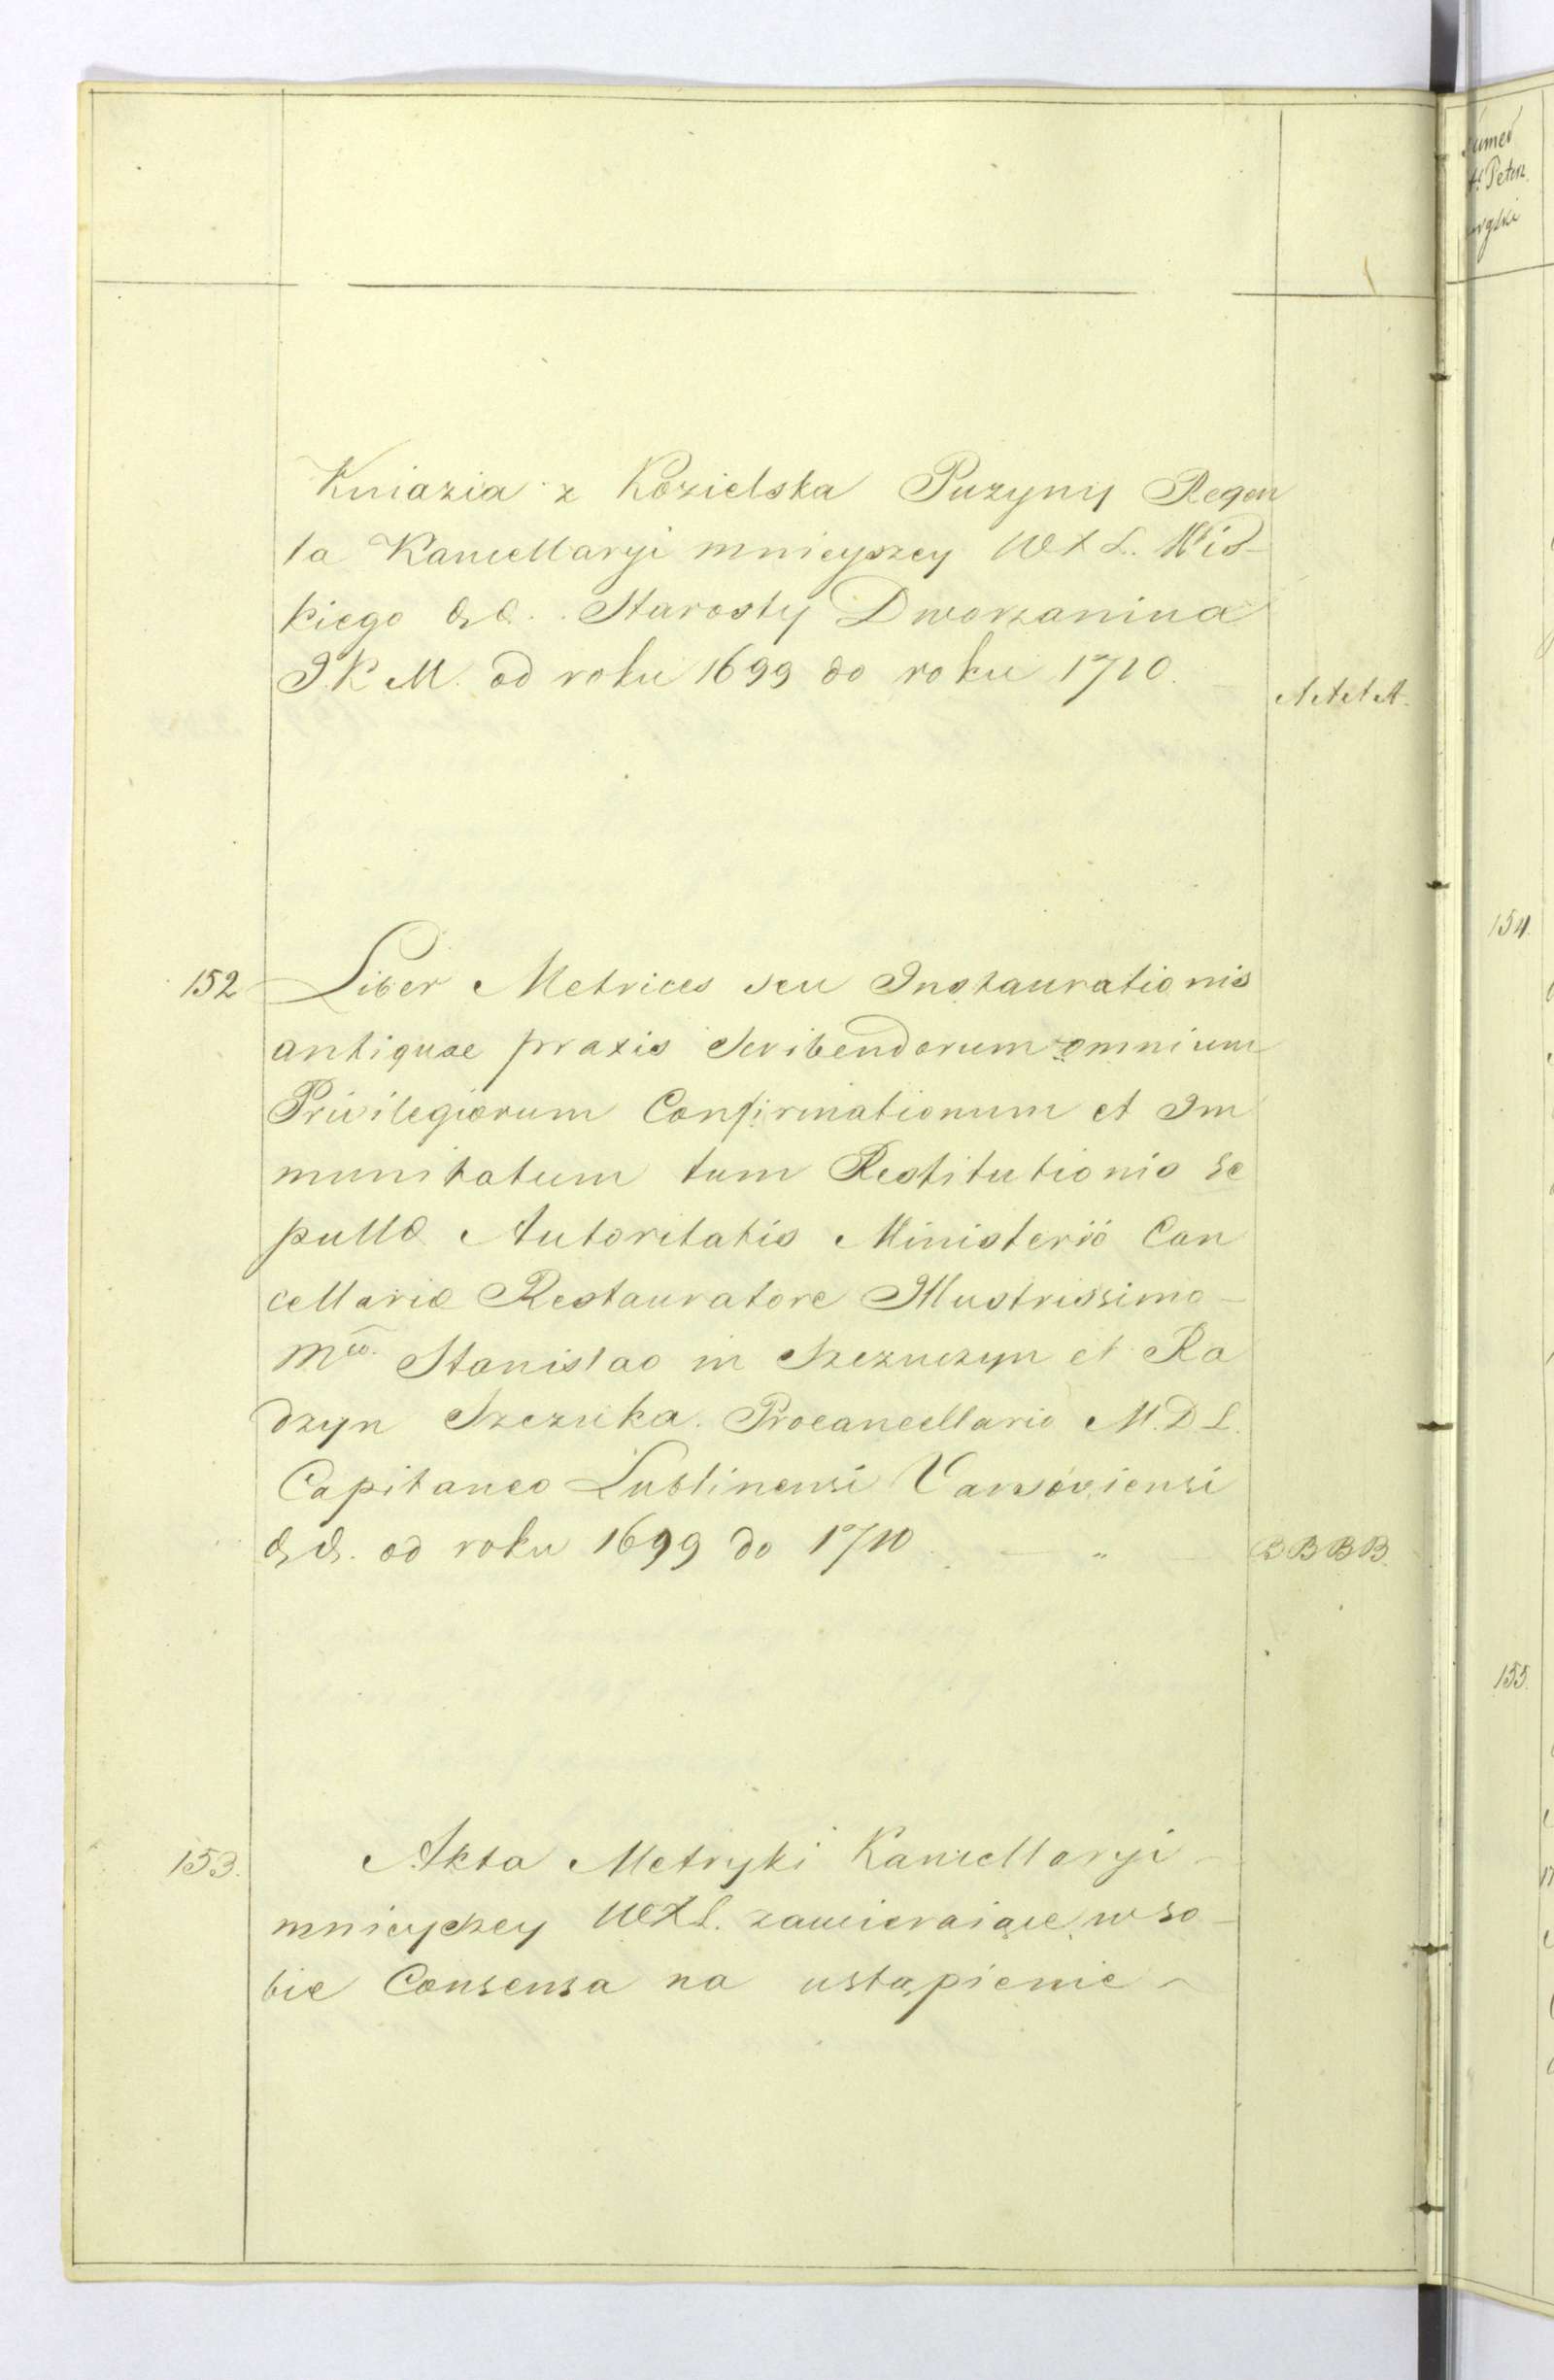 Kniazia z Kozielska Puzyny Regen
ta Kancellaryi mnieyszey WXL. Wis-
kiego &c. Starosty Dworzanina
J.K.M. od roku 1699 do roku 1710. AAAA.
152 Liber Metrices seu Instaurationis
antiquae praxis Scribendorum omnium
Privilegiorum Confirmationum et Im
munitatum tum Restitutionis se
pultæ Autoritatis Ministerii Can
cellariæ Restauratore Illustrissimo
Stanislao in Szczuczyn et Ra
dzyn Szczuka. Procancellario M.D.L.
Capitaneo Lublinensi Varsoviensi
&&. od roku 1699 do 1710. — „ — BBBB.
153. Akta Metryki Kancellaryi
mnieyszey WXL. zawieraiące w so-
bie Consensa na ustąpienie
Numer
St Peter.
154.
155.